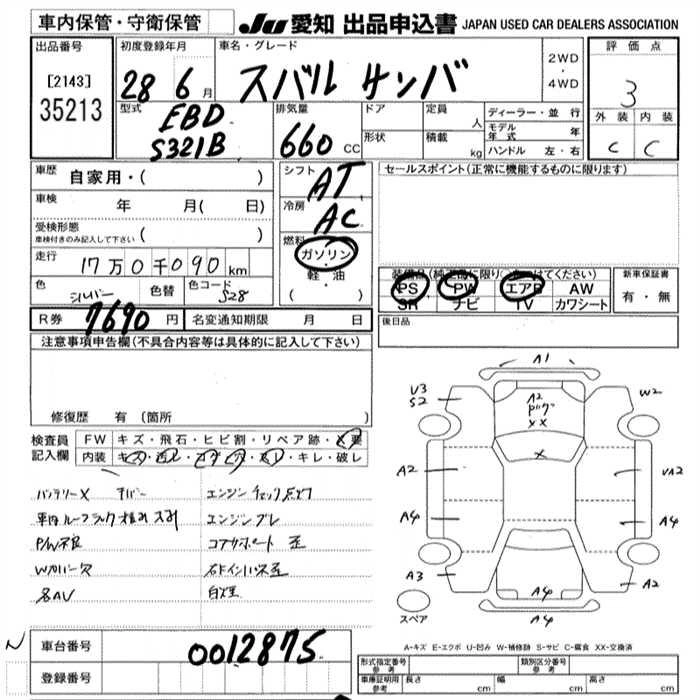 車内保管・守衛保管
JU 愛知 出品申込書 JAPAN USED CAR DEALERS ASSOCIATION
出品番号
[2143]
35213
初度登録年月
28 6 月
車名・グレード
スバル サンバ
2WD
・
4WD
評価点
3
外装 内装
C C
型式
EBD
S321B
排気量
660 CC
ドア
形状
定員 人
積載 kg
ディーラー・並行
モデル年式 年
ハンドル 左・右
車歴 自家用・( )
車検 年 月( 日)
受検形態
車検付きのみ記入して下さい ( )
走行 17万0千090km
色 シルバー 色替 色コード S28
R券 7690 円 名変通知期限 月 日
シフト AT
冷房 AC
燃料
ガソリン
・
軽・油
( )
セールスポイント(正常に機能するものに限ります)
PS PW エアB AW
SR ナビ TV カワシート
新車保証書
有・無
後日品
注意事項申告欄(不具合内容等は具体的に記入して下さい)
修復歴 有 (箇所
検査員
記入欄
FW キズ・飛石・ヒビ割・リペア跡・✕要
内装 キズ・汚レ・コゲ・穴・スレ・キレ・破レ
バッテリーX
エンジンチェック点灯
車内ルーフラック
P/W不良
エンジンブレ
A1
V3
S2
A2
XX
W2
X
A2
VA2
A4
A4
A3
A4
A2
A4
スペア
A-キズ E-エクボ U-凹み W-補修跡 S-サビ C-腐食 XX-交換済
N
車台番号 0012875
登録番号
形式指定番号
参考
類別区分番号
参考
車庫証明用
参考
長さ cm 幅 cm 高さ cm